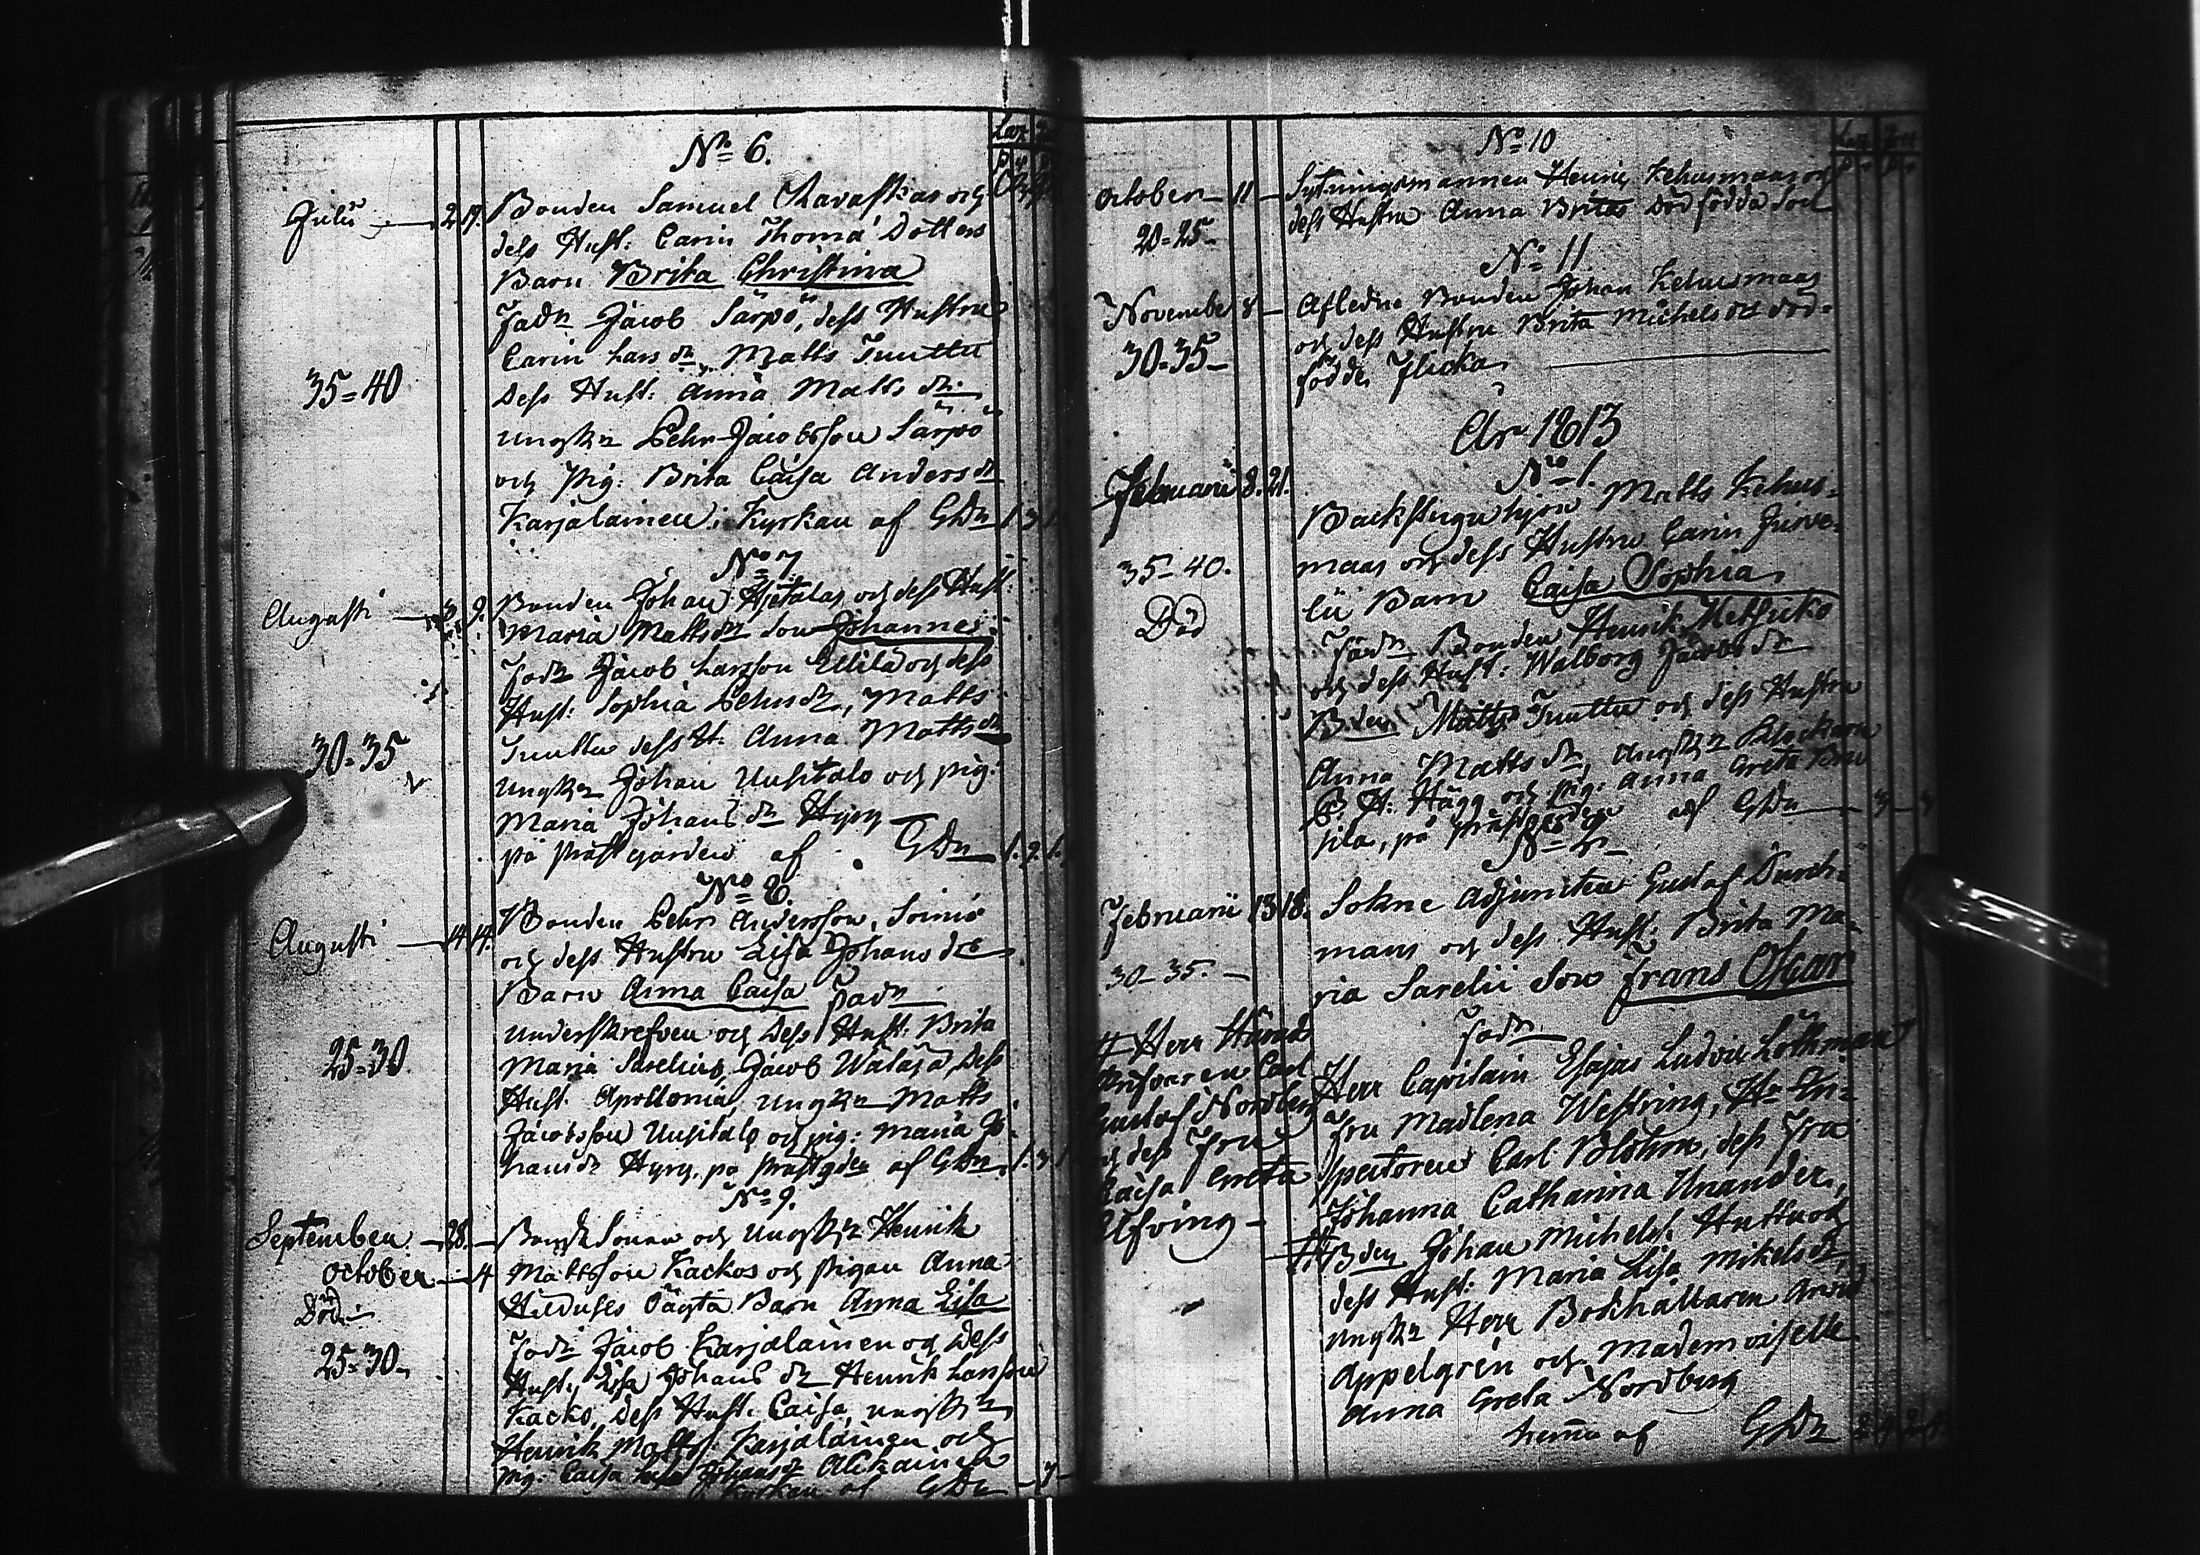 N:o 6.
Julii 2 17. Bonden Samuel Charaskas och
dess Hust: Carin Thomæ Dotters
Barn Brita Christina
Fadr Jacob Särpö, dess Hustru
Carin Lars dr, Matts Tuuttu
35=40
Dess Hust: Anna Matts dr.
ungkn Pehr Jacobsson Särpö
och Pig: Brita Caisa Anders dr
Karjalainen; Kyrkan af GDn 1. 3 1.
N:o 7
Augusti 9. Bonden Johan Hjetalas och dess Hust:
Maria Matts dr Son Johannes.
Fadr Jacob Larsson Ellilä och dess
Hust: Sophia Pehrs dr, Matts
Tuuttu dess H. Anna Matts dr
30-35
ungkn Johan Uusitalo och pig:
Maria Johans dr Hyry
på Prästgården af GDn 1. 2. 1.
N:o 8.
Augusti 14 14. Bonden Pehr Andersson Soinio
och dess Hustru Lisa Johans dr
Barn Anna Caisa Fadr
underskrefven och Dess Hust: Brita
25=30.
Maria Sarelius, Jacob Wataja, Dess
Hust Apollonia, ungkn Matts
Jacobsson Uusitalo och pig: Maria Jo-
hans dr Hyry, på Prästgden af GDn 1. 3 1
N:o 9.
September 28. Bonde Sonen och ungkn Henrik
October 4 Mattsson Kackos och Pigan Anna
Död
Barn Anna Lisa
25=30.
Fadr Jacob Karjalainen och Dess
Hust: Lisa Johans dr Henrik Larsson
Kacko, dess Hust: Caisa, ungkn
Henrik Matts Karjalainen och
pig: Caisa Johans dr Alikainen
Kyrkan af GDn 3
N:o 10
October 11 Sytningsmannen Henric Kehusmaas och
dess Hustru Anna Britas Död födda Son
20=25
N:o 11
November 8 Afledne Bonden Johan Kehusmaas
och dess Hustru Brita Michels dr död-
30=35
födde Flicka
År 1813
N:o 1.
Februarii 8. 21. Backstuguhjon Matts Kehus-
maas och dess Hustru Carin Juvo-
35-40.
lii Barn Caisa Sophia
Död
Fadr Bonden Henrik Metsicko
och dess Hust: Walborg Jacobs dr
Bden Matts Tuuttu och dess Hustru
Anna Matts dr, ungkn Klockarn
B. H: Hägg och pig: Anna Greta
sila, på Prästgården af GDn 3 3
N:o 2
Februarii 13 18. Sokne Adjuncten Gustaf Durch-
mans och dess Hust: Brita Ma-
30-35.
ria Sarelii Son Frans Oscar
Fadr
# Herr
Carl
Gustaf Nordberg
och dess Fru
Caisa Greta
Ulfving
Herr Capitain Esajas Ludvig Löthman
Fru Madlena Westring, Hr In-
spectoren Carl Blohm, dess Fru
Johanna Catharina Unander,
# Bden Johan Michels: Huttu och
dess Hust: Maria Lisa Mikels dr,
ungkn Herr Bokhållaren Arvid
Appelgren och Mademoiselle
Anna Greta Nordberg
hemma af GDn 2 4 2 4